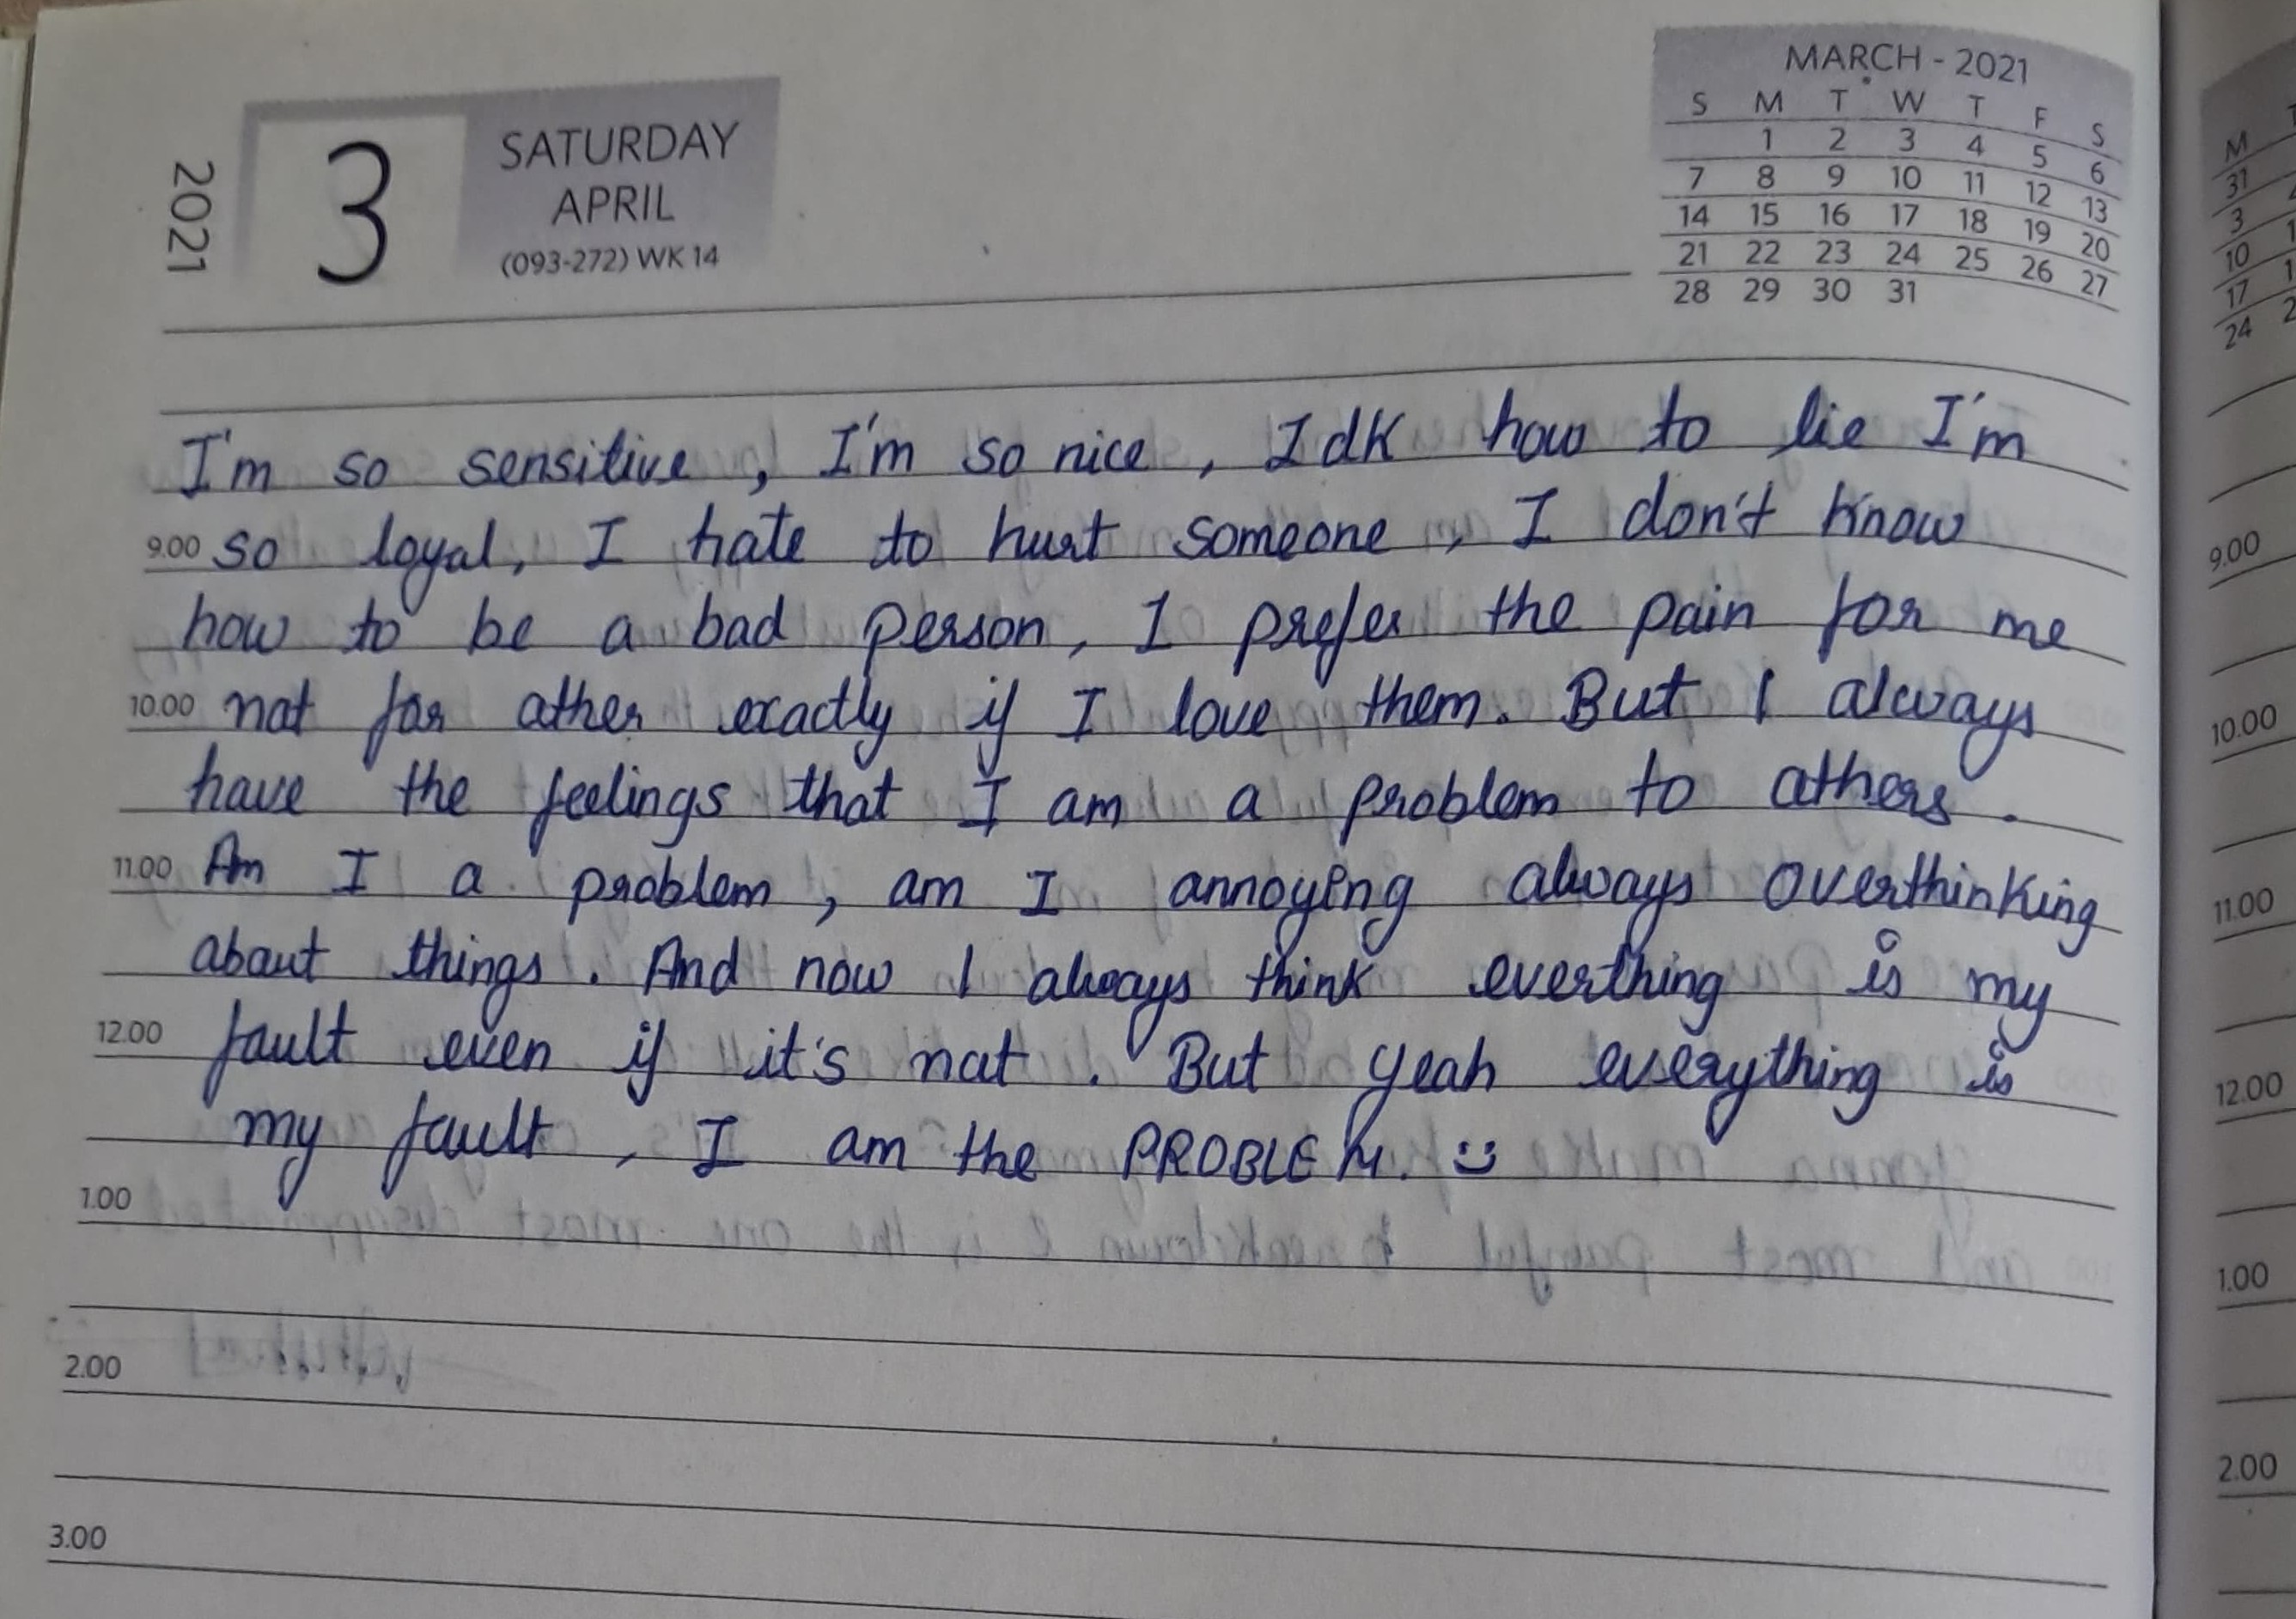 2021
3
SATURDAY
APRIL
(093-272) WK 14
MARCH - 2021
S M T W T F S
1 2 3 4 5 6
7 8 9 10 11 12 13
14 15 16 17 18 19 20
21 22 23 24 25 26 27
28 29 30 31
I'm so sensitive, I'm so nice, Idk how to lie I'm
9.00 so loyal, I hate to hurt someone, I don't know
how to be a bad person, I prefer the pain for me
10.00 not for other exactly if I love them. But I always
have the feelings that I am a problem to others.
11.00 Am I a problem, am I annoying always overthinking
about things. And now I always think everthing is my
12.00 fault even if it's not. But yeah everything is
my fault, I am the PROBLEM. :)
1.00
2.00
3.00
M
31
3
10
17
24
9.00
10.00
11.00
12.00
1.00
2.00